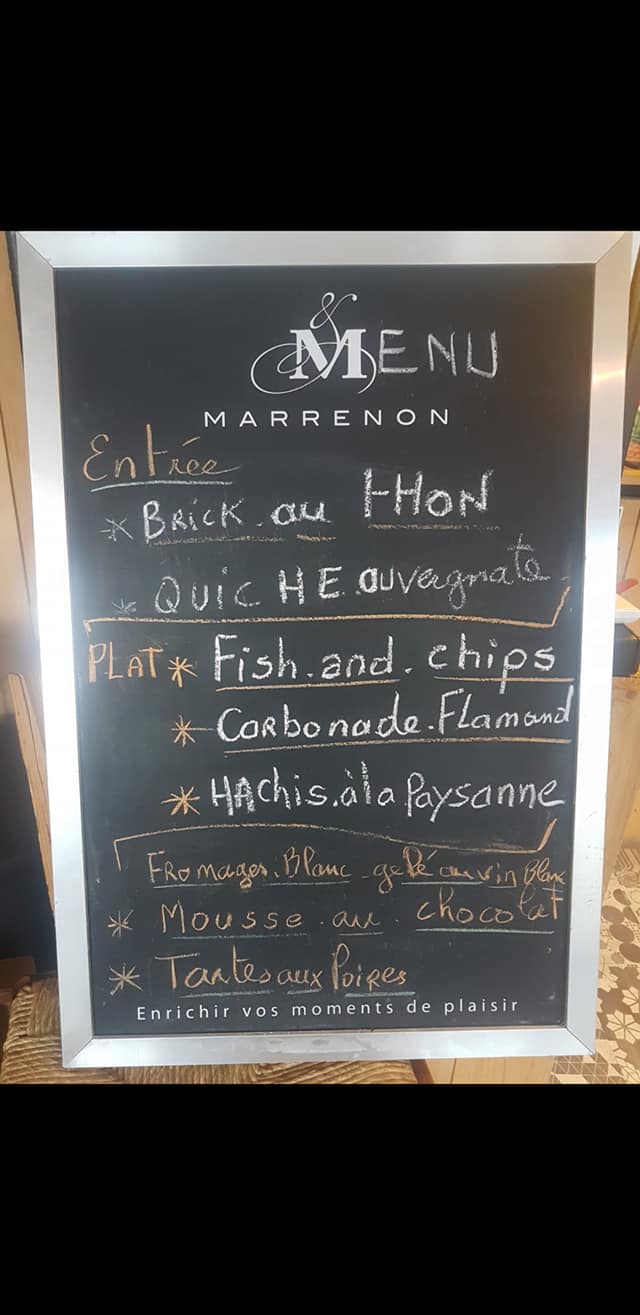 MENU
MARRENON
Entrée
* BRICK au tHON
* QUICHE auvergnate
PLAT * Fish and chips
* CaRbonade Flamand
* HAchis à la Paysanne
FRomages Blanc gelé au vin Blanc
* Mousse au chocolat
* Tartes aux Poires
Enrichir vos moments de plaisir